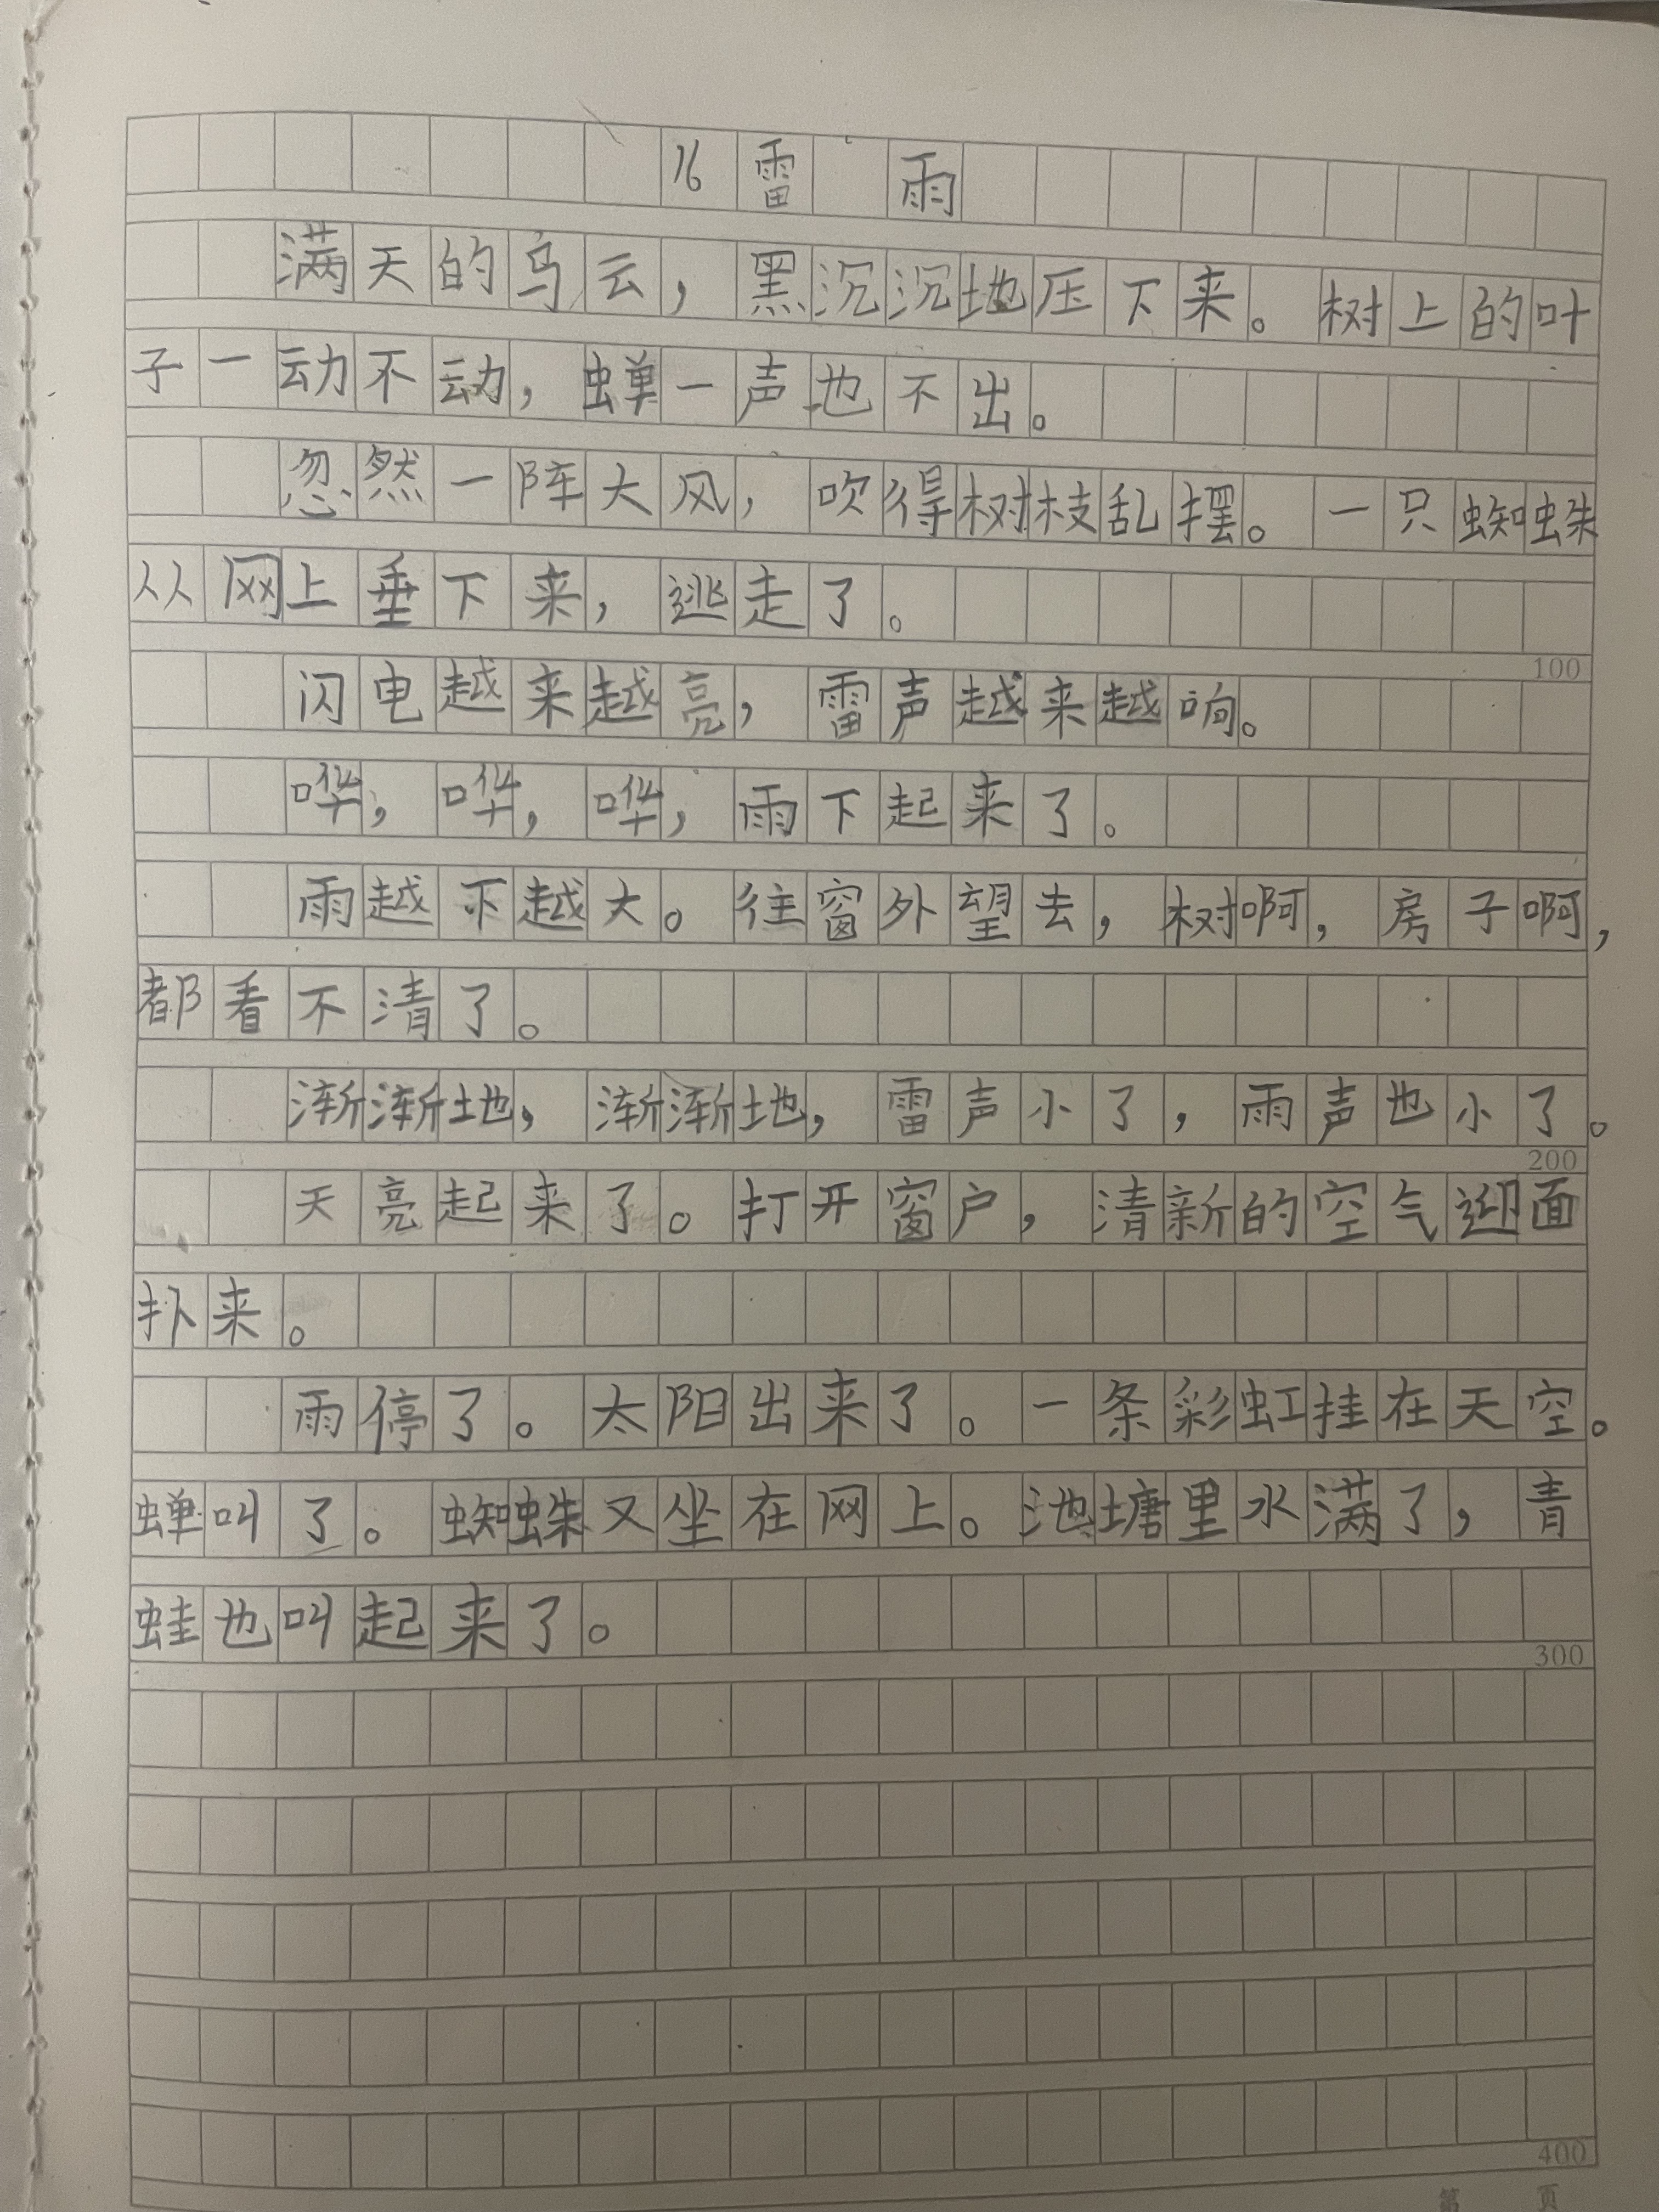 16 雷 雨
满天的乌云，黑沉沉地压下来。树上的叶
子一动不动，蝉一声也不出。
忽然一阵大风，吹得树枝乱摆。一只蜘蛛
从网上垂下来，逃走了。
100
闪电越来越亮，雷声越来越响。
哗，哗，哗，雨下起来了。
雨越下越大。往窗外望去，树啊，房子啊，
都看不清了。
渐渐地，渐渐地，雷声小了，雨声也小了。
200
天亮起来了。打开窗户，清新的空气迎面
扑来。
雨停了。太阳出来了。一条彩虹挂在天空。
蝉叫了。蜘蛛又坐在网上。池塘里水满了，青
蛙也叫起来了。
300
400
第 页